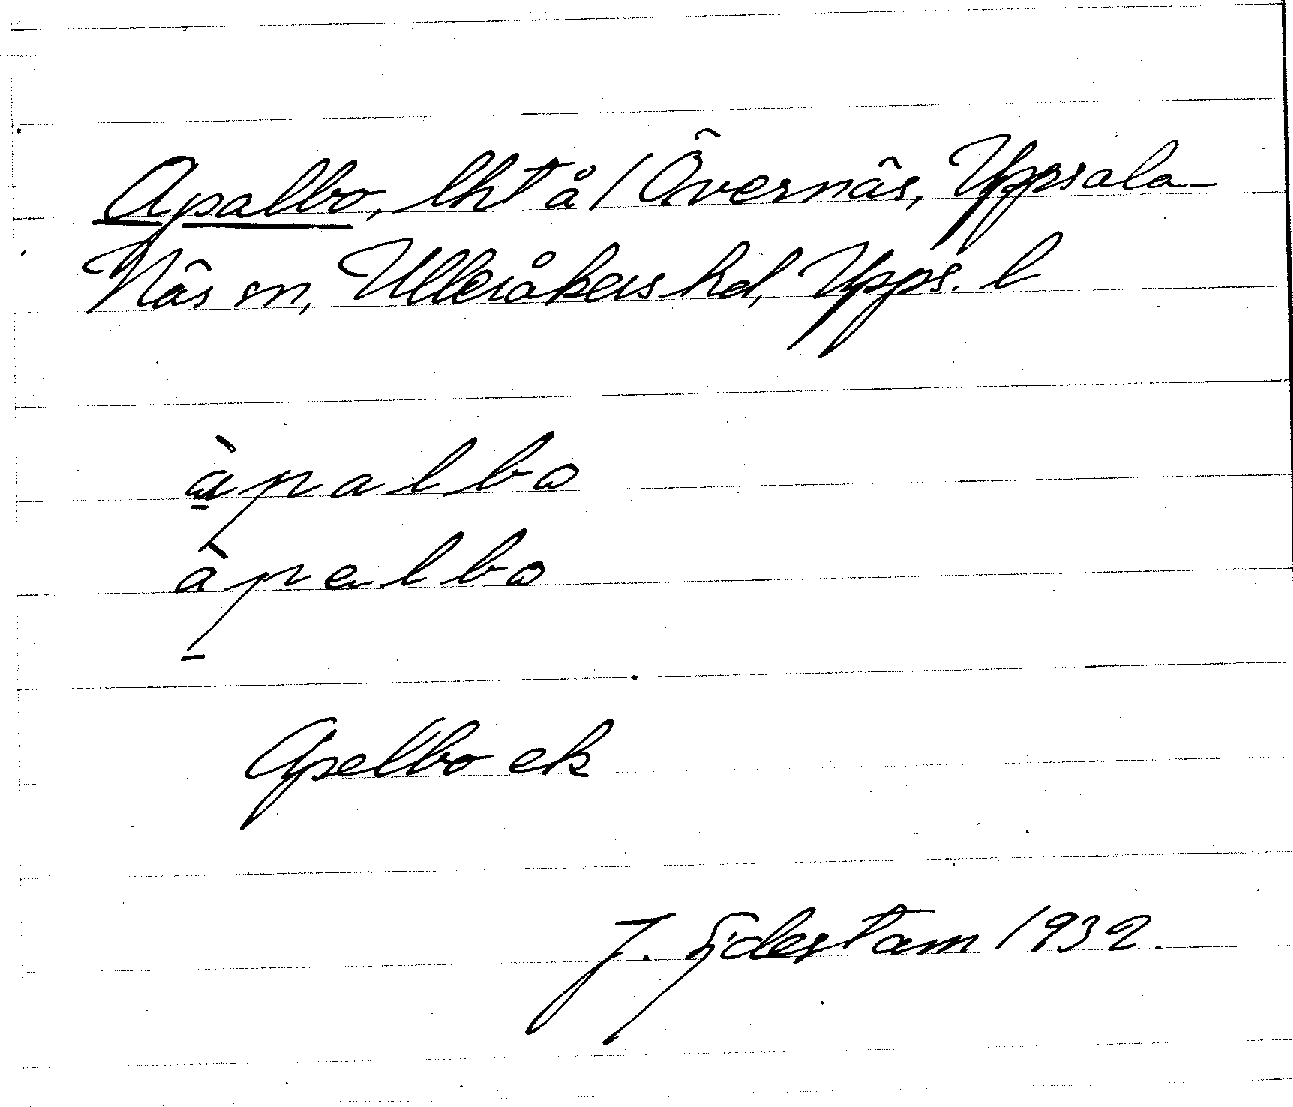 Apalbo, lht å 1 Övernäs, Uppsala-
Näs sn, Ulleråkers hd, Upps. l
àpalbo
àpalbo
Apelbo ek
1932.